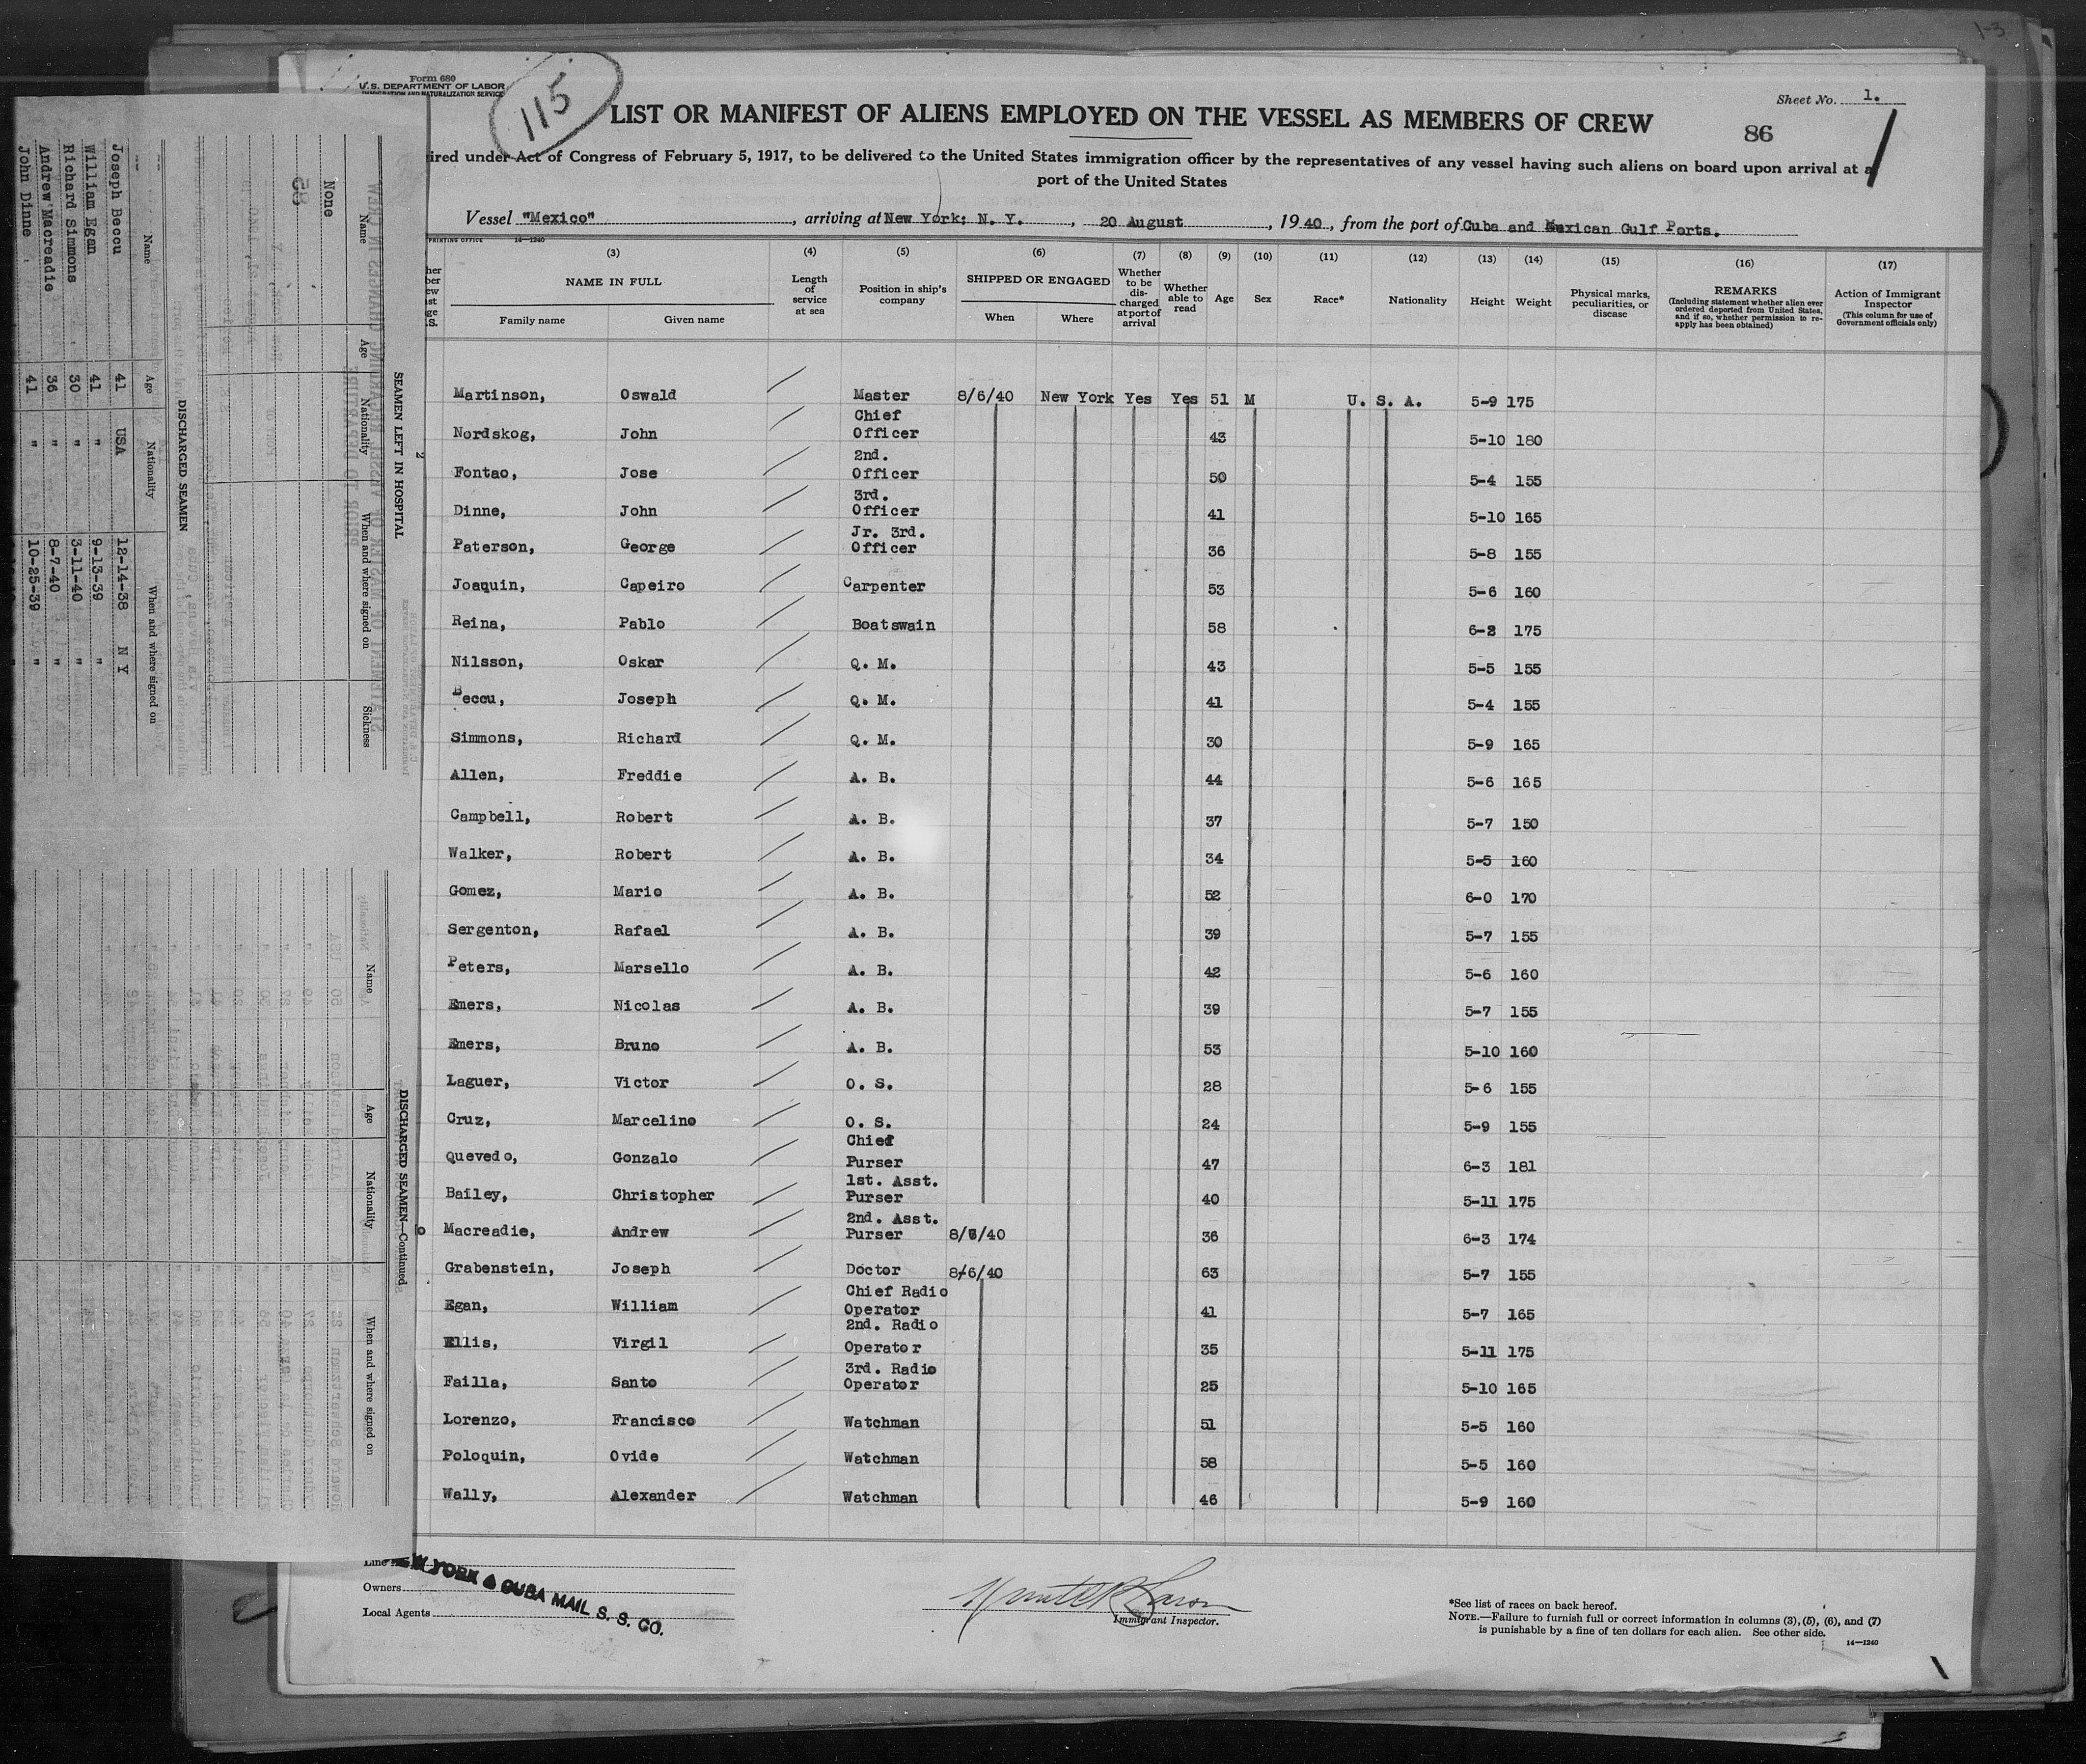 1-3
Form 680
U. S. DEPARTMENT OF LABOR
IMMIGRATION AND NATURALIZATION SERVICE
115
LIST OR MANIFEST OF ALIENS EMPLOYED ON THE VESSEL AS MEMBERS OF CREW
Sheet No. 1.
86
ired under Act of Congress of February 5, 1917, to be delivered to the United States immigration officer by the representatives of any vessel having such aliens on board upon arrival at a
port of the United States
Vessel "Mexico", arriving at New York; N. Y., 20 August, 1940, from the port of Cuba and Mexican Gulf Ports.
PRINTING OFFICE 14—1240
(3) (4) (5) (6) (7) (8) (9) (10) (11) (12) (13) (14) (15) (16) (17)
NAME IN FULL
Family name Given name
Length of service at sea
Position in ship's company
SHIPPED OR ENGAGED
When Where
Whether to be discharged at port of arrival
Whether able to read
Age
Sex
Race*
Nationality
Height
Weight
Physical marks, peculiarities, or disease
REMARKS
(Including statement whether alien ever ordered deported from United States, and if so, whether permission to reapply has been obtained)
Action of Immigrant Inspector
(This column for use of Government officials only)
Martinson, Oswald Master 8/6/40 New York Yes Yes 51 M U. S. A. 5-9 175
Nordskog, John Chief Officer 43 5-10 180
Fontao, Jose 2nd. Officer 50 5-4 155
Dinne, John 3rd. Officer 41 5-10 165
Paterson, George Jr. 3rd. Officer 36 5-8 155
Joaquin, Capeiro Carpenter 53 5-6 160
Reina, Pablo Boatswain 58 6-2 175
Nilsson, Oskar Q. M. 43 5-5 155
Beccu, Joseph Q. M. 41 5-4 155
Simmons, Richard Q. M. 30 5-9 165
Allen, Freddie A. B. 44 5-6 165
Campbell, Robert A. B. 37 5-7 150
Walker, Robert A. B. 34 5-5 160
Gomez, Mario A. B. 52 6-0 170
Sergenton, Rafael A. B. 39 5-7 155
Peters, Marsello A. B. 42 5-6 160
Emers, Nicolas A. B. 39 5-7 155
Emers, Bruno A. B. 53 5-10 160
Laguer, Victor O. S. 28 5-6 155
Cruz, Marcelino O. S. 24 5-9 155
Quevedo, Gonzalo Chief Purser 47 6-3 181
Bailey, Christopher 1st. Asst. Purser 40 5-11 175
Macreadie, Andrew 2nd. Asst. Purser 8/7/40 36 6-3 174
Grabenstein, Joseph Doctor 8/6/40 63 5-7 155
Egan, William Chief Radio Operator 41 5-7 165
Ellis, Virgil 2nd. Radio Operator 35 5-11 175
Failla, Santo 3rd. Radio Operator 25 5-10 165
Lorenzo, Francisco Watchman 51 5-5 160
Poloquin, Ovide Watchman 58 5-5 160
Wally, Alexander Watchman 46 5-9 160
Line
Owners
Local Agents
NEW YORK & CUBA MAIL S. S. CO.
Immigrant Inspector.
*See list of races on back hereof.
NOTE.—Failure to furnish full or correct information in columns (3), (5), (6), and (7)
is punishable by a fine of ten dollars for each alien. See other side.
14—1240
SEAMEN LEFT IN HOSPITAL
Name Age Nationality When and where signed on Sickness
None
DISCHARGED SEAMEN
Name Age Nationality When and where signed on
Joseph Beccu 41 USA 12-14-38 N Y
William Egan 41 " 9-13-39 "
Richard Simmons 30 " 3-11-40 "
Andrew Macreadie 36 " 8-7-40 "
John Dinne 41 " 10-25-39 "
DISCHARGED SEAMEN—Continued
Name Age Nationality When and where signed on